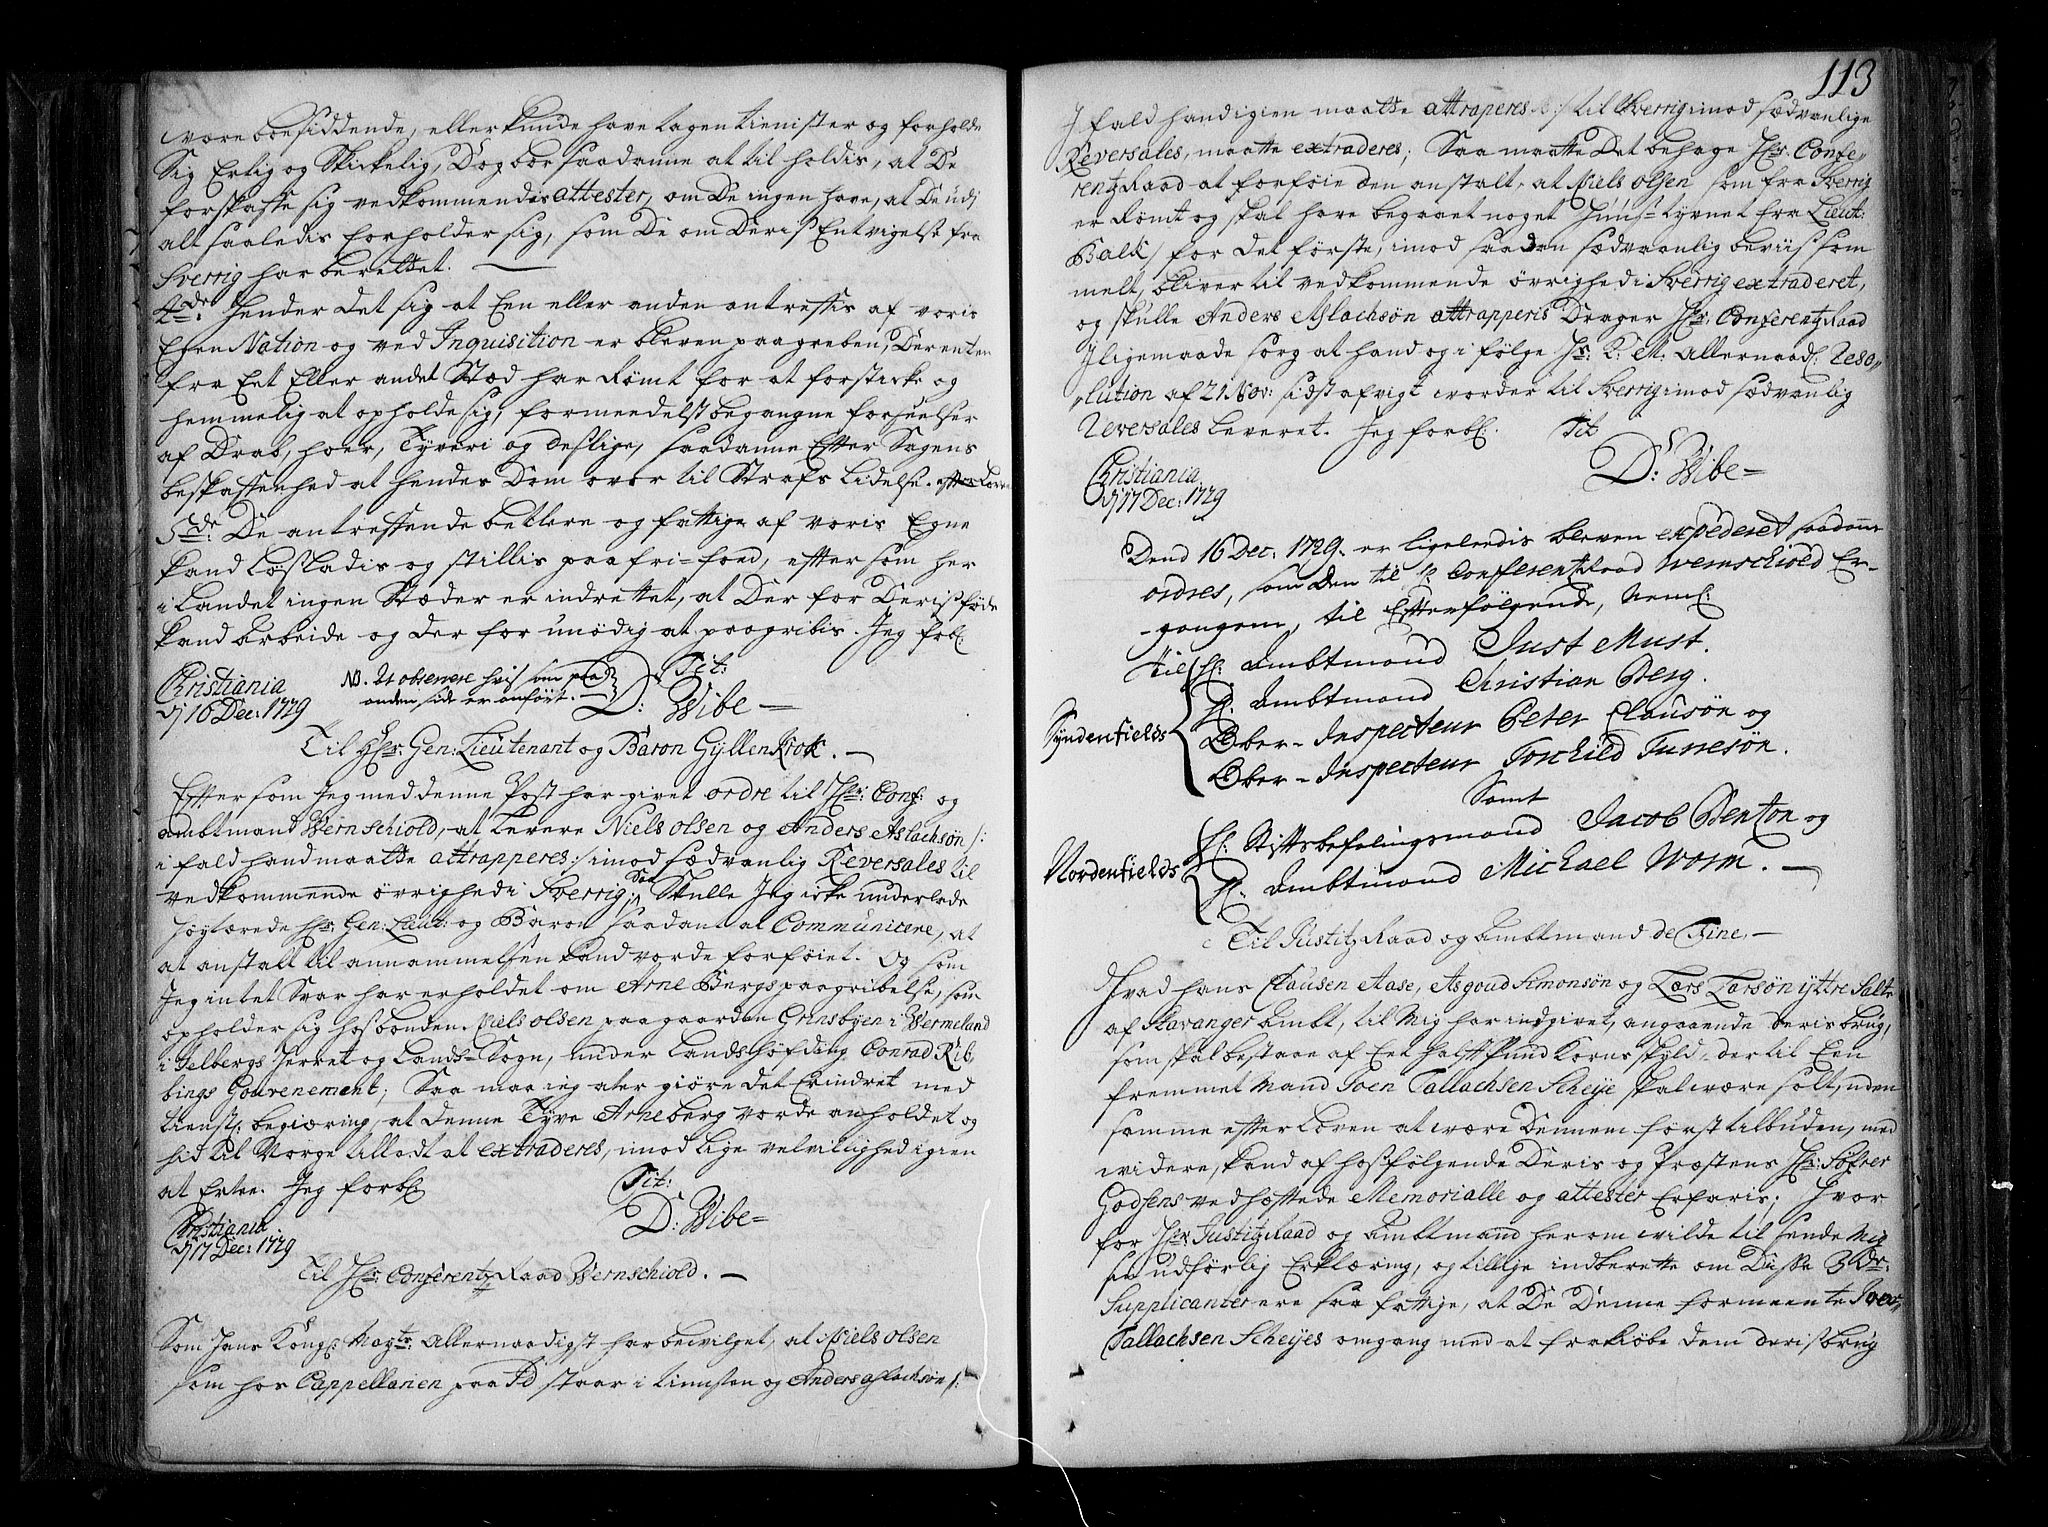 være boesiddende, eller kunde have tagen tienister og forholde
Sig Erlig og Skickelig, Dog bør saadanne at tilholdis, at De
forskaffe sig vedkommendis attester, om De ingen have, at De udj
alt saaledis forholder sig, som De om Deris Entvigelse fra
Sverrig har berettet.
4de: Hender det sig at Een eller anden antreffis af voris
Egen Nation og ved Inquisition er bleven paagreben, Der enten
fra Eet Eller andet Stæd har Rømt for at forsticke og
hemmelig at opholde sig, formeedelst begangne forseelser
af Drab, hoer, Tyveri og deslige, saadanne Efter Sagens
beskaffenhed at hendes Dom over til Strafs Lidelse. efter Loven
5de: De antreffende betlere og fattige af voris Egne
kand løsladis og stillis paa fri-foed, efter som her
i Landet ingen Stæder er indrettet, at Der for Deris føde
kand Arbeide og der for unödig at paagribis. Jeg forbl:
Christiania
dj 16 Dec: 1729
NB. At observere hvis som paa
anden side er anført.
Tit:
D: Wibe
Til Hr: Gen: Lieutenant og Baron Gyllenkrok.
Efter som Jeg med denne Post har givet ordre til Hr: Conf: og
ambtmand Wernschiold, at levere Niels olsen og Anders Aslachsøn /:
i fald hand maatte attrapperes :/ imod sædvanlig Reversales til
vedkommende övrighed i Sverrig, Saa Skulle Jeg icke underlade
Höylærede Hr: Gen: Lieut: og Baron saadant at Communicere, at
at anstalt til annammelsen kand vorde forföiet. Og som
Jeg intet Svar har erholdet om Arne Bergs paagribelse, som
opholder sig hos bonden Niels olsen paa gaarden Grinsbyen i Vermeland
i Jelbergs Herret og Lands-Sogn, under Landshöfding Conrad Rib,,
bings Gouvernement; Saa maa ieg ater giöre det Erindret med
tienst: begiæring, at denne Tyve Arne berg vorde anholdet og
hid til Norge tilladt at extraderes, imod lige velvilighed igien
at Ertee. Jeg forbl:
Tit:
D: Wibe
Christiania
dj 17 Dec: 1729
Til Hr: ConferentzRaad Wernschiold.
Som Hans Kongl: Mayts: Allernaadigst har bevilget, at Niels olsen
som hos Cappellanen paa Id staar i tienesten og Anders Aslachsøn /:
113
I fald hand igien maatte attraperes :/ til Sverrig imod sædvanlige
Reversales, maatte extraderes; Saa maatte Det behage Hr: Confe,,
rentzRaad at forföie den anstalt, at Niels olsen som fra Sverrig
er Rømt og skal have begaaet noget Huus-tyvnet fra Lieut:
Balk, for det förste, imod saadan sædvaanlig beviis som
melt, bliver til vedkommende övrighed i Sverrig extraderet,
og skulle Anders Aslachsøn attrapperis Drager Hr: ConferentzRaad
Iligemaade sorg at hand og i fölge Hs: K: M: Allernaad: Reso,,
,,lution af 21 Nov: sidst afvigt vorder til Sverrig imod sædvanlig
Reversales leveret. Jeg forbl:
Tit
D: Wibe
Christiania
dj 17 Dec: 1729
Dend 16 Dec. 1729. er ligeledis bleven expederet saadanne
ordres, som den til Hr. ConferentzRaad Wernschiold Er-
-gangen, til Efterfölgende, Neml:
Til Hr. Ambtmand Just Must.
Hr. Ambtmand Christian Berg.
Syndenfields
Ober-Inspecteur Peter Clausøn og
Ober-Inspecteur Torchild Turresøn.
Samt
Hr. Stiftsbefalingsmand Jacob Benzon og
Nordenfields
Hr. Ambtmand Michael Worm.
Til JustitzRaad og Ambtmand de Fine.
Hvad hans Clausen Aase, Asgoud Simonsøn og Lars Larsøn yttre Salte
af Stavanger Ambt, til Mig har indgivet, angaaende deris brug,
som skal bestaae af Eet halft Pund Korns skyld, der til Een
fremmet Mand Joen Tallachsen Scheije skal være solt, uden
samme efter Loven at være Dennem først tilbuden, med
videre, kand af hosfölgende Deris og Præstens Hr: Söfver
Godsens vedhæftede Memorialle og attester Erfaris; Hvor
for Hr: JustitzRaad og Ambtmand herom vilde tilsende Mig
sin udförlig Erklæring, og tillije indberette om Disse 3de:
Supplicanter ere saa fattige, at De Denne formeente Joen
Tallachsen Scheijes omgang med at frakiöbe dem deris brug